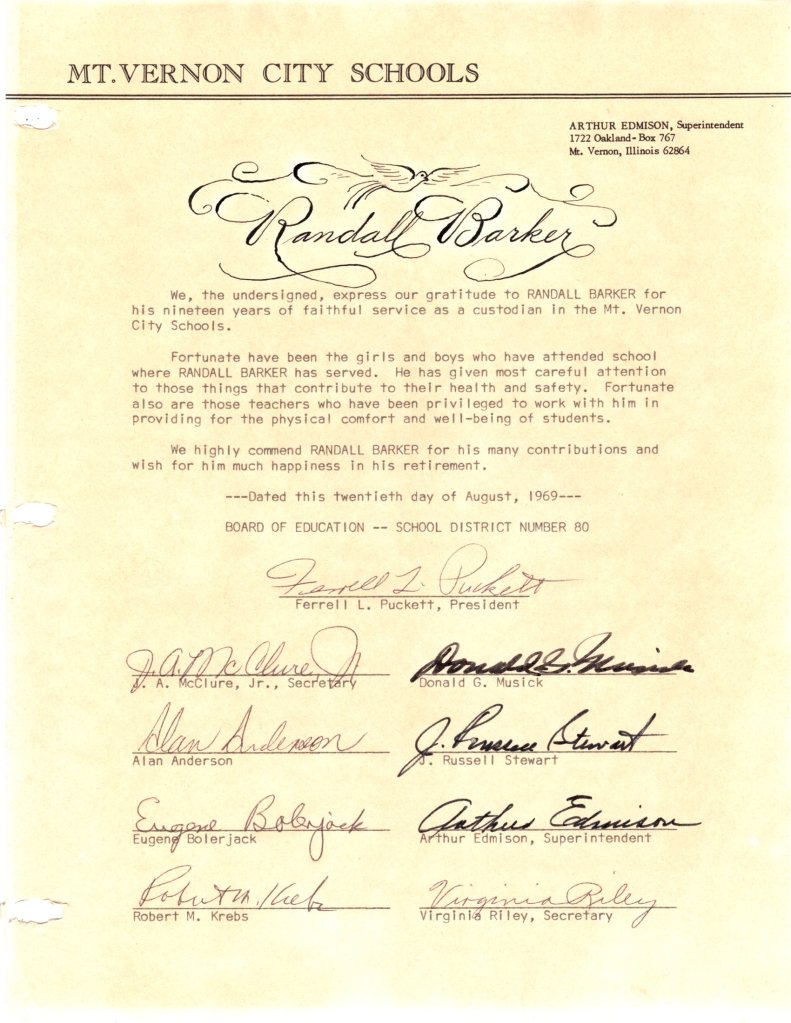 MT. VERNON CITY SCHOOLS
ARTHUR EDMISON, Superintendent
1722 Oakland - Box 767
Mt. Vernon, Illinois 62864
Randall Barker
We, the undersigned, express our gratitude to RANDALL BARKER for
his nineteen years of faithful service as a custodian in the Mt. Vernon
City Schools.
Fortunate have been the girls and boys who have attended school
where RANDALL BARKER has served. He has given most careful attention
to those things that contribute to their health and safety. Fortunate
also are those teachers who have been privileged to work with him in
providing for the physical comfort and well-being of students.
We highly commend RANDALL BARKER for his many contributions and
wish for him much happiness in his retirement.
---Dated this twentieth day of August, 1969---
BOARD OF EDUCATION -- SCHOOL DISTRICT NUMBER 80
Ferrell L. Puckett
Ferrell L. Puckett, President
J. A. McClure, Jr
J. A. McClure, Jr., Secretary
Donald G. Musick
Donald G. Musick
Alan Anderson
Alan Anderson
J. Russell Stewart
J. Russell Stewart
Eugene Bolerjack
Eugene Bolerjack
Arthur Edmison
Arthur Edmison, Superintendent
Robert M. Krebs
Robert M. Krebs
Virginia Riley
Virginia Riley, Secretary